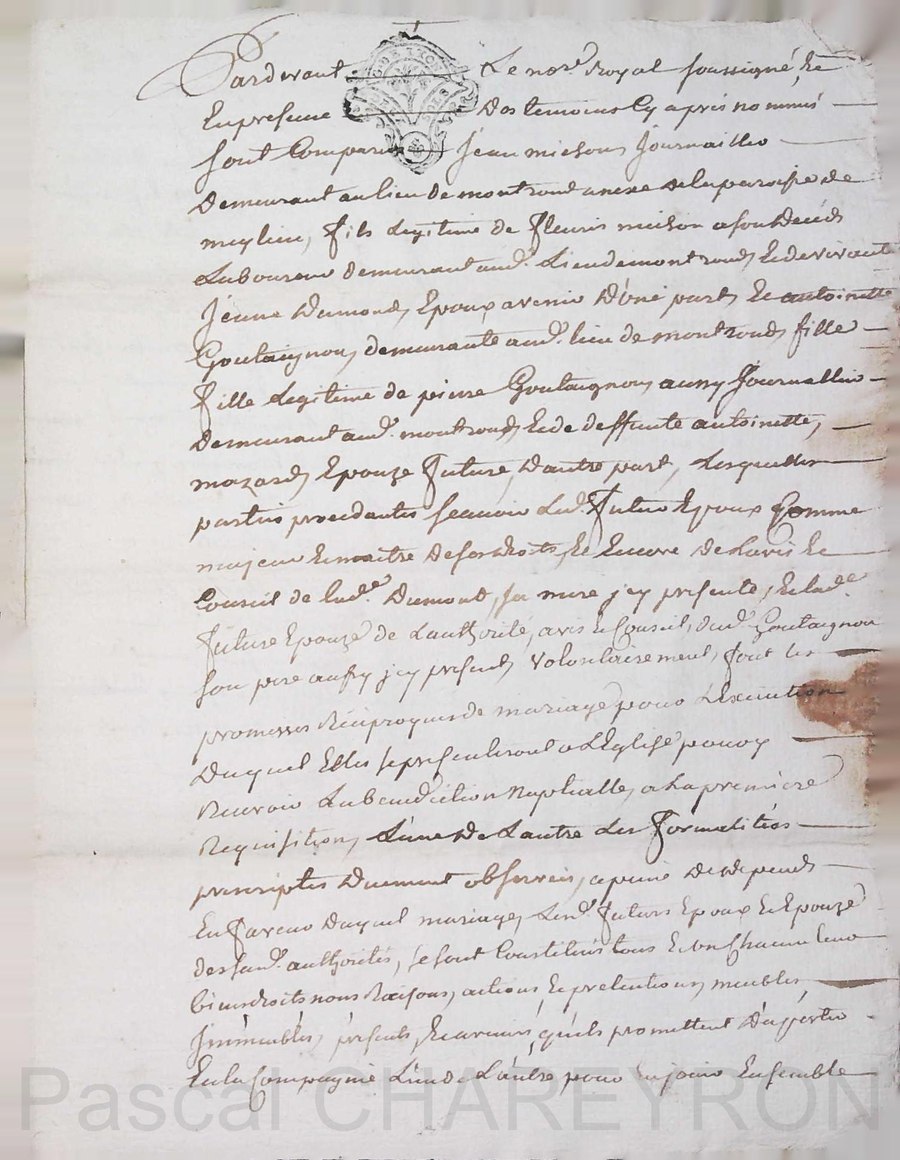 Pardevant Le no.re Royal soussigné, Et
En presence Des temoins Cy apres nommés
sont Comparu Jean Journaillier
Demeurant au lieu de montrond anexe de la paroisse de
meylieu, fils Legitime de fleuris
Laboureur demeurant aud. Lieu de montrond, Et de vivante
Jeanne Dumond, Epoux avenir D'une part, Et antoinette
Goutaignon, demeurante aud. lieu de montrond, fille
fille Legitime de pierre Goutaignon, aussy Journallier
Demeurant aud. montrond, Et de deffunte antoinette,
mazard, Epouze future, D'autre part, Lesquelles
parties procedantes scavoir Led. futur Epoux Comme
majeur Et maitre de ses droits, Et Encore De L'avis Et
Conseil de lad.e Dumont, sa mere j'cy presente, Et lad.e
future Epouze de L'authorité, avis Et Conseil, dud. Goutaignon
son pere aussy j'cy present, Volontairement, font les
promesses Reciproques de mariage pour L'execution
Duquel Elles se presenteront a L'Eglise pour y
Recevoir La benediction Nuptialle, a la premiere
Requisition, L'une De L'autre Les formalités
prescriptes Duement observées, a peine De depends
En faveur Duquel mariage, Lesd. futurs Epoux Et Epouze
desd. authorités, se sont Constitués tous Et un chacun leurs
biens droits noms Raisons, actions, Et pretentions, meubles,
Immeubles, présents, Et avenirs, qu'ils promettent D'aporter
En la Compagnie L'un de L'autre pour En jouir Ensemble
Pascal CHAREYRON